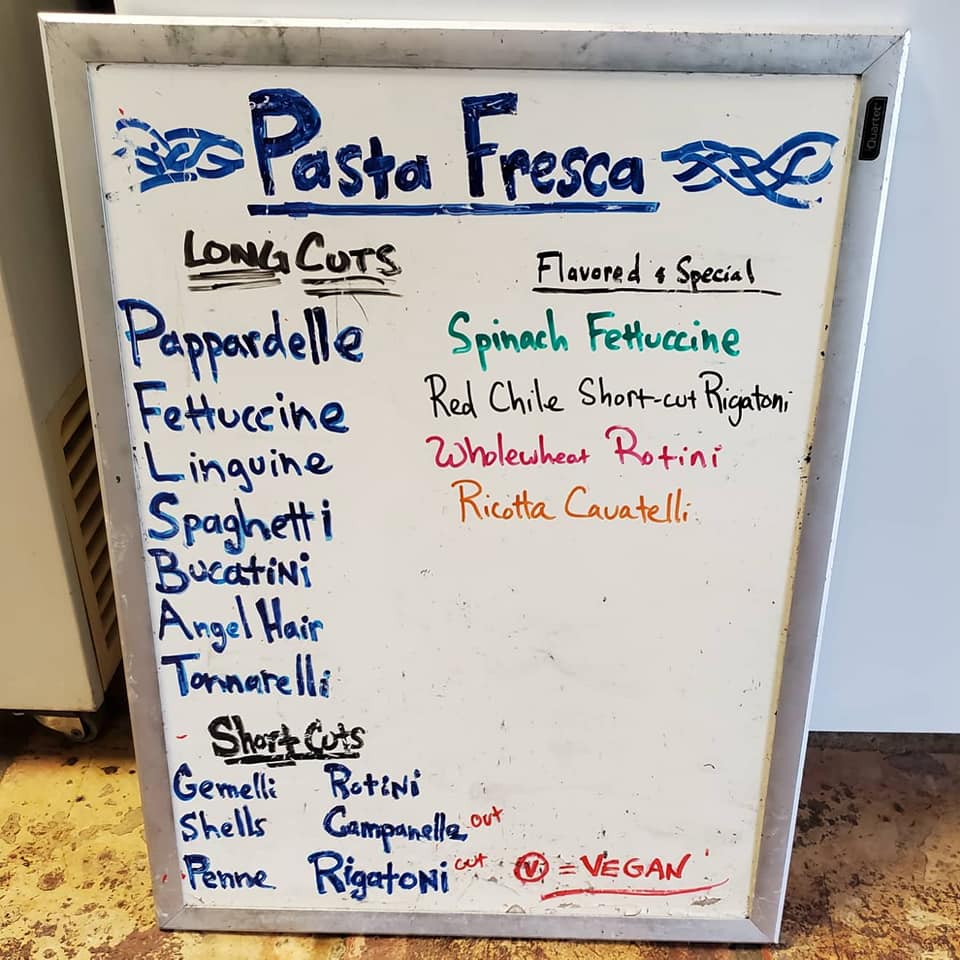 Pasta Fresca
Quartet
LONG CUTS
Pappardelle
Fettuccine
Linguine
Spaghetti
Bucatini
Angel Hair
Tonnarelli
Flavored & Special
Spinach Fettuccine
Red Chile Short-cut Rigatoni
Wholewheat Rotini
Ricotta Cavatelli
Short Cuts
Gemelli Rotini
Shells Campanelle out
Penne Rigatoni out
V = VEGAN